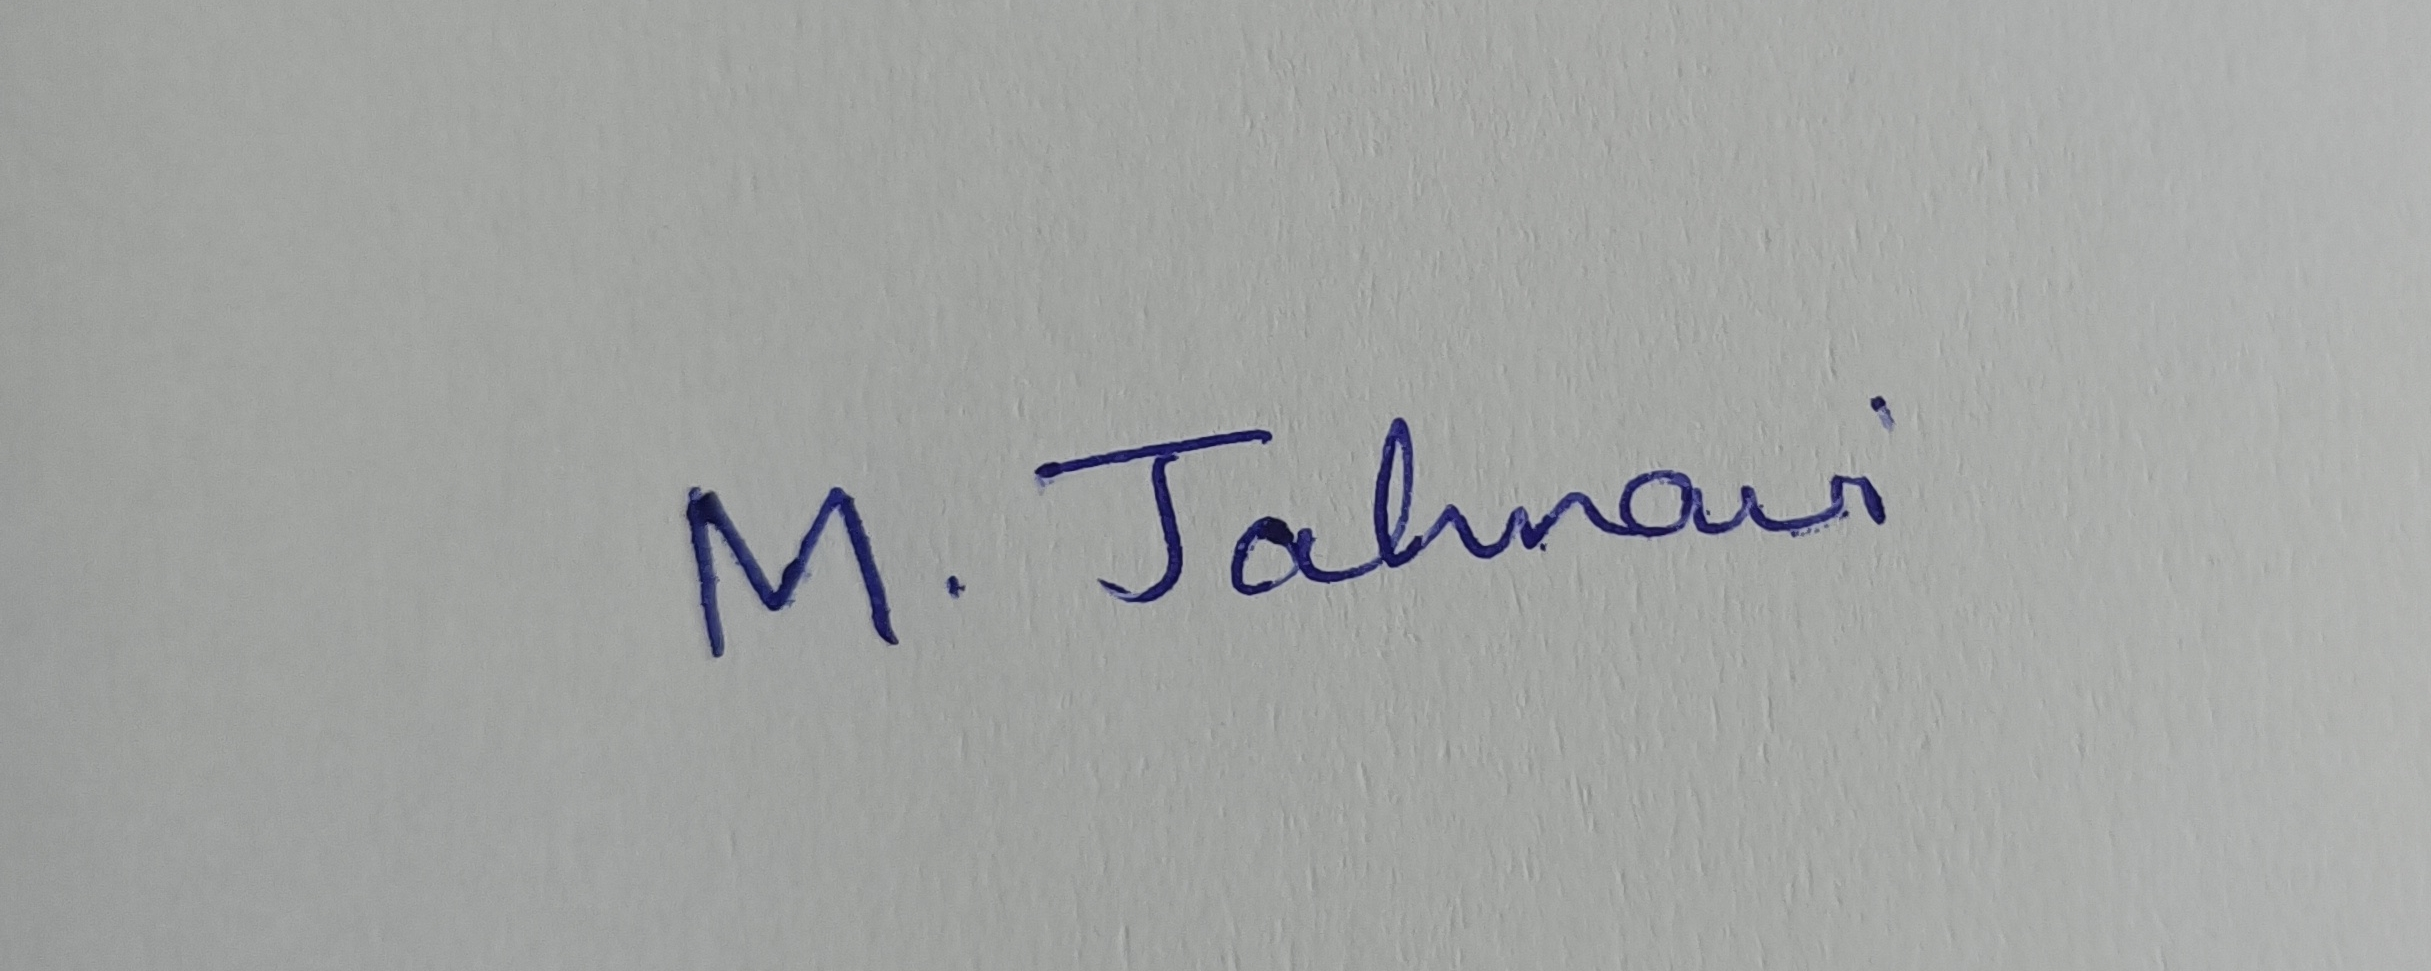 M. Jahnavi